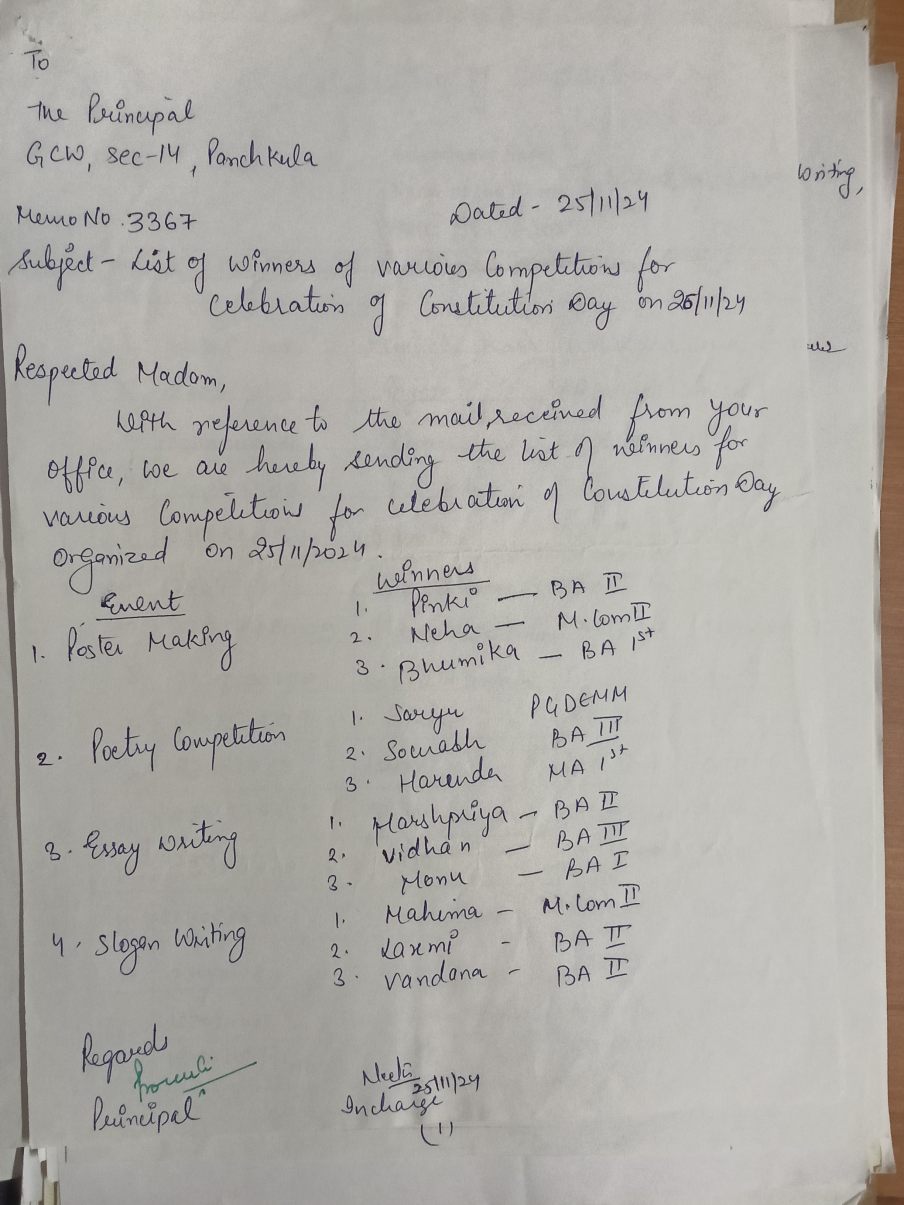 To
The Principal
GCW, Sec-14, Panchkula
Writing,
Memo No. 3367
Dated - 25/11/24
Subject - List of Winners of various Competitions for
Celebration of Constitution Day on 26/11/24
Respected Madam,
With reference to the mail, received from your
office, we are hereby sending the list of winners for
various Competitions for celebration of Constitution Day
organized on 25/11/2024.
Event
Winners
1. Poster Making
1. Pinki — BA II
2. Neha — M.Com II
3. Bhumika — BA 1st
2. Poetry Competition
1. Saryu PGDEMM
2. Sourabh BA III
3. Harender MA 1st
3. Essay Writing
1. Harshpriya - BA II
2. Vidhan — BA III
3. Monu — BA I
4. Slogan Writing
1. Mahima - M.Com II
2. Laxmi - BA II
3. Vandana - BA II
Regards
Principal
Neetu
25/11/24
Incharge
(1)